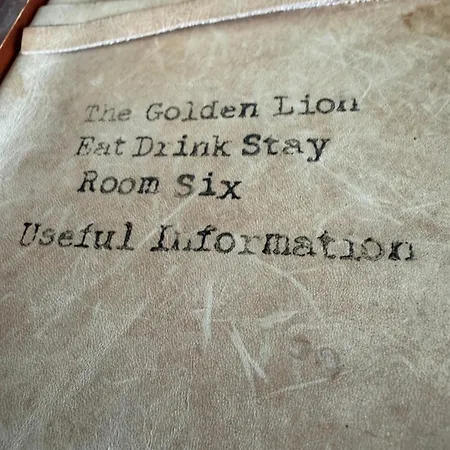 The Golden Lion
Eat Drink Stay
Room Six
Useful Information